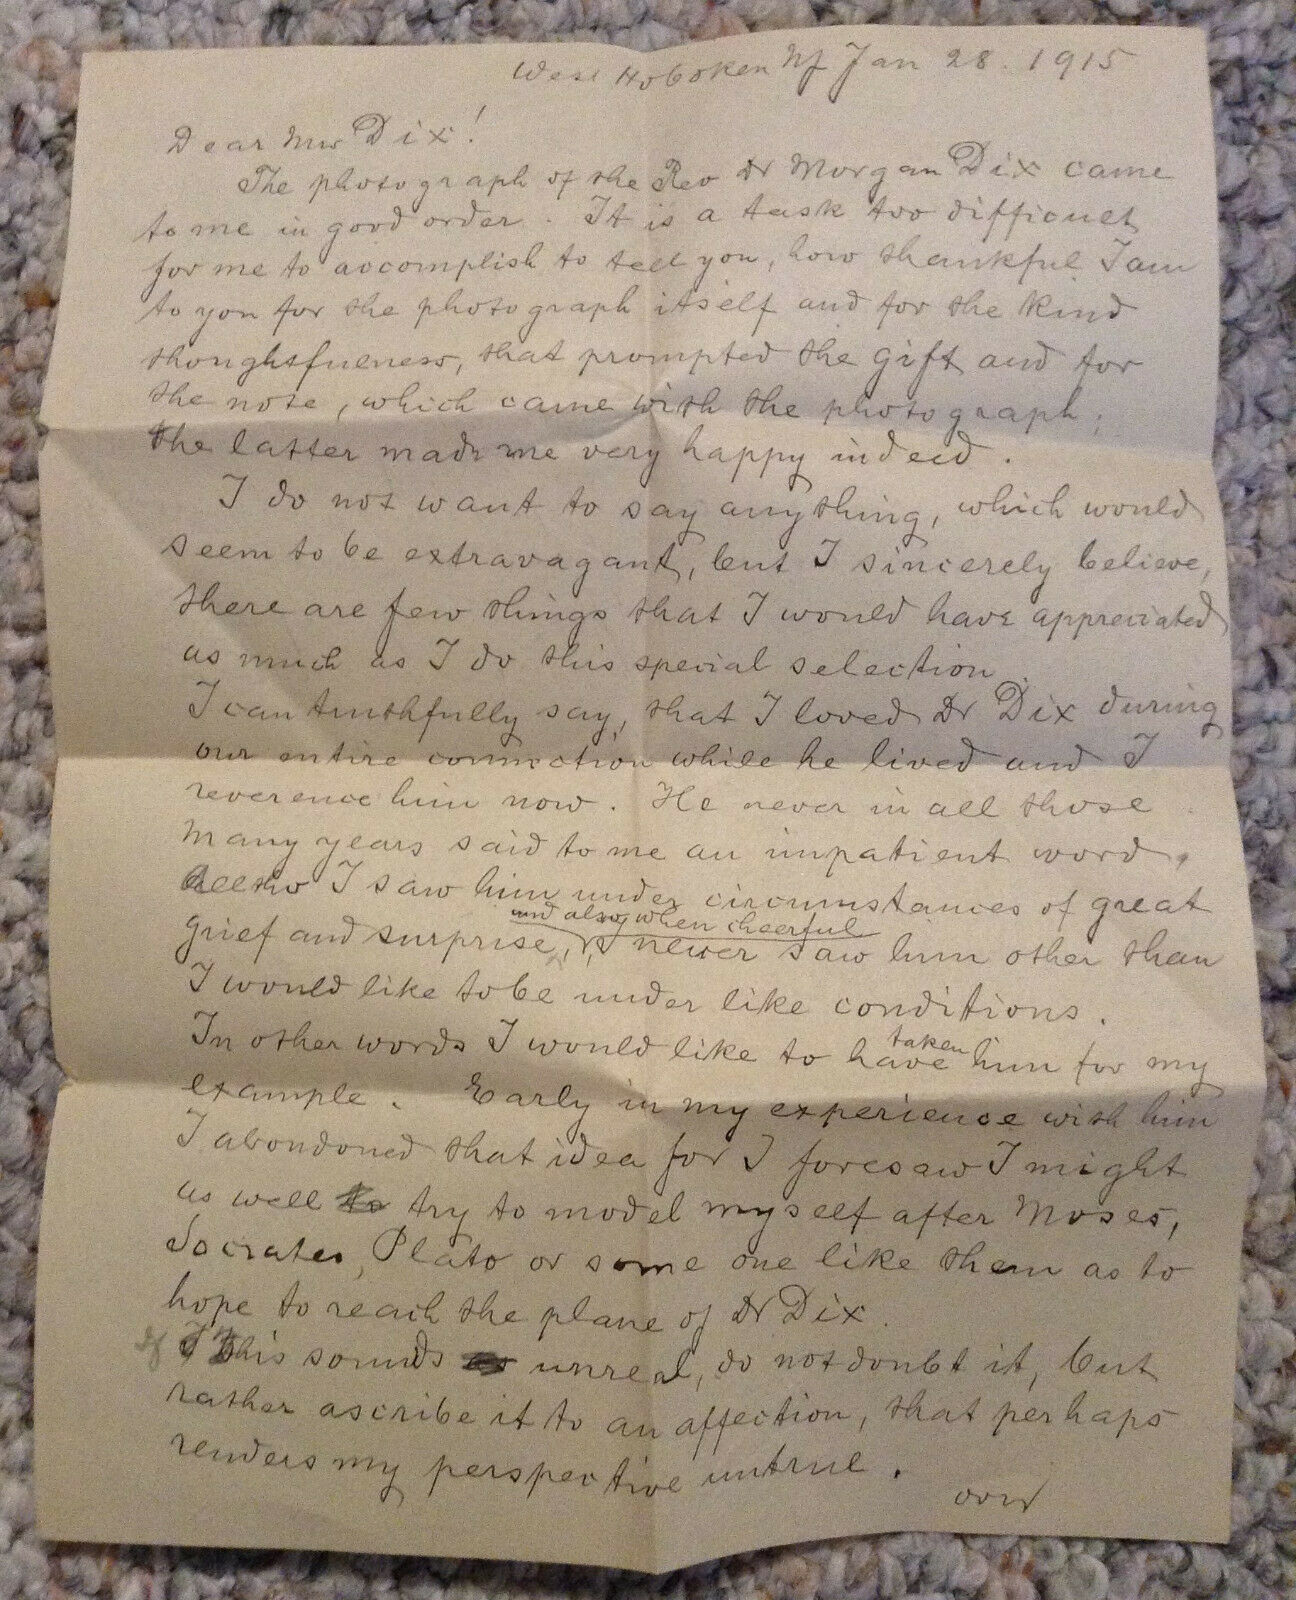 West Hoboken NJ Jan 28. 1915
Dear Mr Dix!
The photograph of the Rev Dr Morgan Dix came
to me in good order. It is a task too difficult
for me to accomplish to tell you, how thankful I am
to you for the photograph itself and for the kind
thoughtfulness, that prompted the gift and for
the note, which came with the photograph;
the latter made me very happy indeed.
I do not want to say anything, which would
seem to be extravagant, but I sincerely believe,
there are few things that I would have appreciated
as much as I do this special selection.
I can truthfully say, that I loved Dr Dix during
our entire connection while he lived and I
reverence him now. He never in all those
many years said to me an impatient word,
altho I saw him under circumstances of great
and also when cheerful
grief and surprise, I never saw him other than
I would like to be under like conditions.
taken
In other words I would like to have him for my
example. Early in my experience with him
I abondoned that idea for I foresaw I might
as well try to model myself after Moses,
Socrates, Plato or some one like them as to
hope to reach the plane of Dr Dix.
If this sounds unreal, do not doubt it, but
rather ascribe it to an affection, that perhaps
renders my perspective untrue.
over